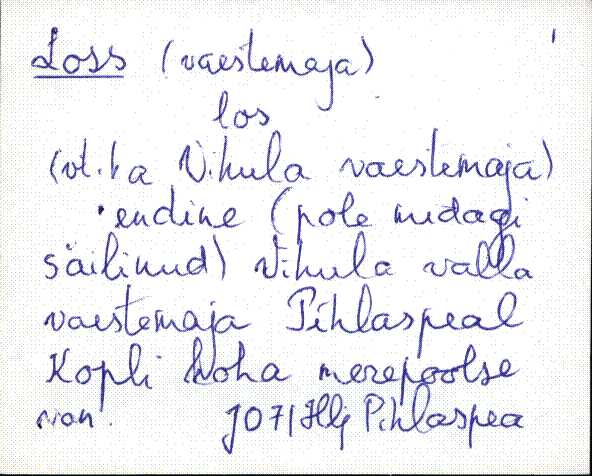 Loss (vaestemaja)
los
(vt. ka Vihula vaestemaja)
endine (pole midagi
säilinud) Vihula valla
vaestemaja Pihlaspeal
Kopli koha merepoolse
J071 Hlj Pihlaspea